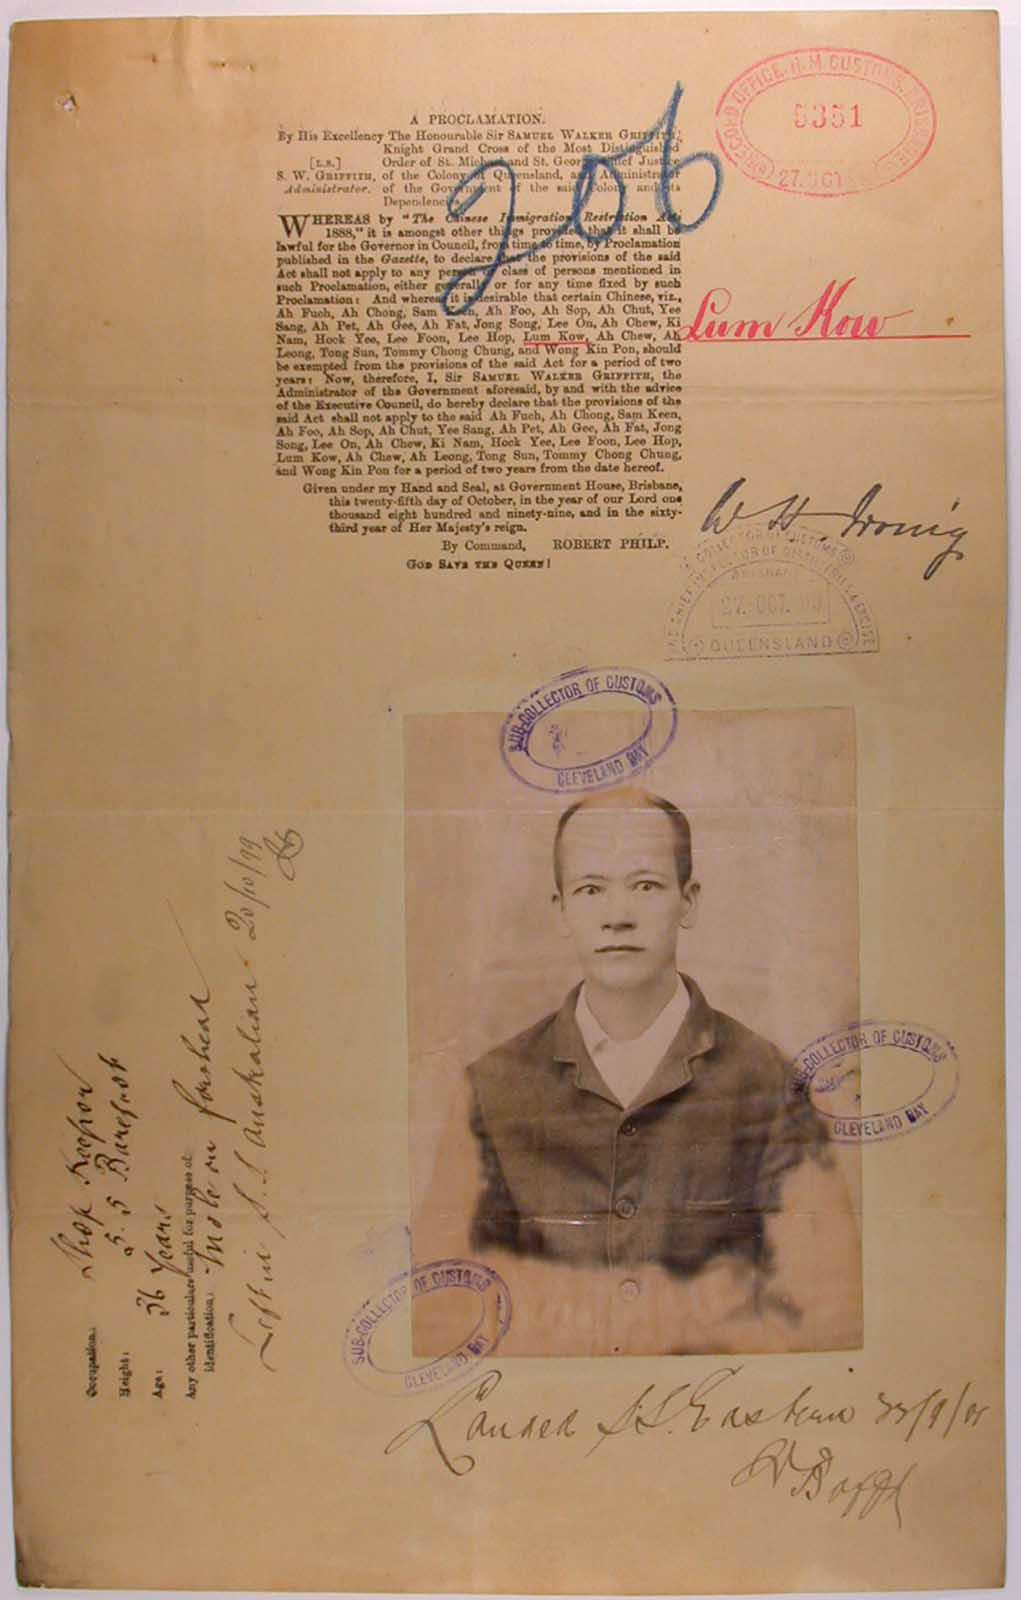 A PROCLAMATION.
By His Excellency The Honourable Sir SAMUEL WALKER GRIFFITH,
Knight Grand Cross of the Most Distinguished
[L.S.] Order of St. Michael and St. George, Chief Justice
S. W. GRIFFITH, of the Colony of Queensland, and Administrator
Administrator. of the Government of the said Colony and its
Dependencies.
WHEREAS by "The Chinese Immigration Restriction Act,
1888," it is amongst other things provided that it shall be
lawful for the Governor in Council, from time to time, by Proclamation
published in the Gazette, to declare that the provisions of the said
Act shall not apply to any person or class of persons mentioned in
such Proclamation, either generally or for any time fixed by such
Proclamation: And whereas it is desirable that certain Chinese, viz.,
Ah Fuch, Ah Chong, Sam Keen, Ah Foo, Ah Sop, Ah Chut, Yee
Sang, Ah Pet, Ah Gee, Ah Fat, Jong Song, Lee On, Ah Chew, Ki
Nam, Hock Yee, Lee Foon, Lee Hop, Lum Kow, Ah Chew, Ah
Leong, Tong Sun, Tommy Chong Chung, and Wong Kin Pon, should
be exempted from the provisions of the said Act for a period of two
years: Now, therefore, I, Sir SAMUEL WALKER GRIFFITH, the
Administrator of the Government aforesaid, by and with the advice
of the Executive Council, do hereby declare that the provisions of the
said Act shall not apply to the said Ah Fuch, Ah Chong, Sam Keen,
Ah Foo, Ah Sop, Ah Chut, Yee Sang, Ah Pet, Ah Gee, Ah Fat, Jong
Song, Lee On, Ah Chew, Ki Nam, Hock Yee, Lee Foon, Lee Hop,
Lum Kow, Ah Chew, Ah Leong, Tong Sun, Tommy Chong Chung,
and Wong Kin Pon for a period of two years from the date hereof.
Given under my Hand and Seal, at Government House, Brisbane,
this twenty-fifth day of October, in the year of our Lord one
thousand eight hundred and ninety-nine, and in the sixty-
third year of Her Majesty's reign.
By Command, ROBERT PHILP.
GOD SAVE THE QUEEN!
206
RECORD OFFICE, H.M. CUSTOMS, BRISBANE
5351
27. OCT
Lum Kow
W H Irving
COLLECTOR OF CUSTOMS
AND CHIEF INSPECTOR OF DISTILLERIES & EXCISE
BRISBANE
27. OCT. 99
QUEENSLAND
SUB-COLLECTOR OF CUSTOMS
CLEVELAND BAY
SUB-COLLECTOR OF CUSTOMS
CLEVELAND BAY
SUB-COLLECTOR OF CUSTOMS
CLEVELAND BAY
Occupation: Shop Keeper
Height: 5.5 Barefoot
Age: 36 Years
Any other particulars useful for purpose of
identification: Mole on forehead
Left in S.S Australian 20/10/99
Landed SS. Eastern 23/9/01